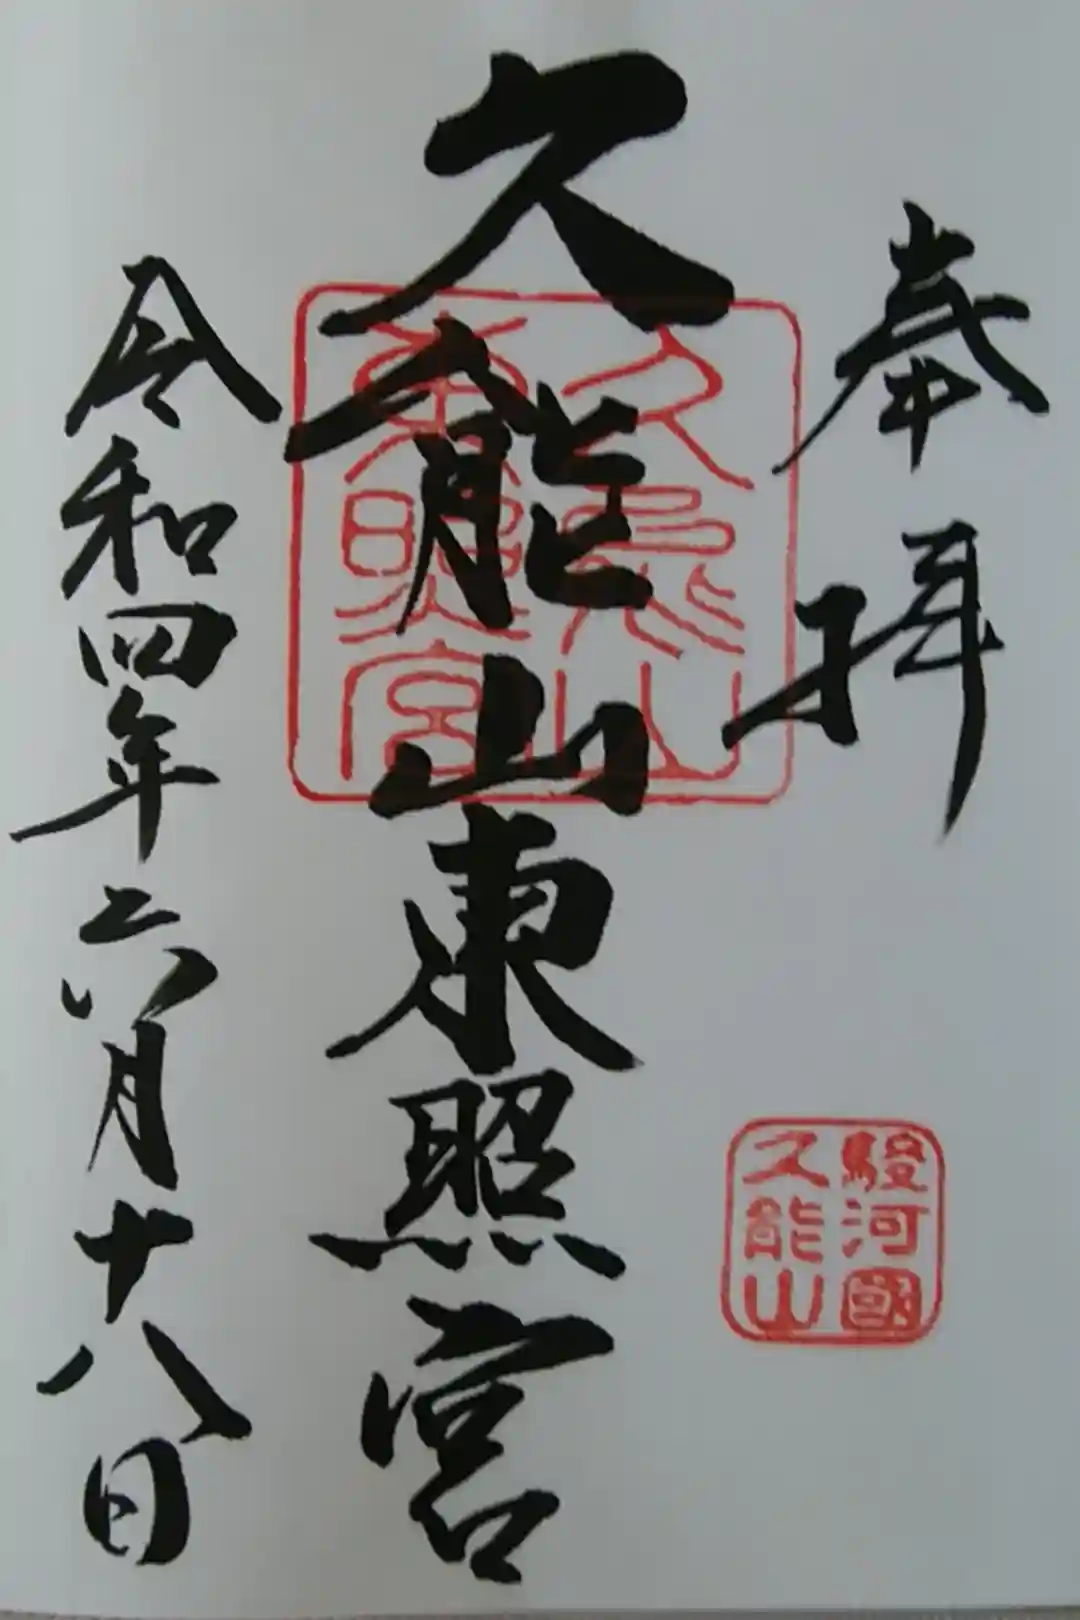 奉拝
駿河國
久能山
久能山東照宮
久能山
東照宮
令和四年六月十八日